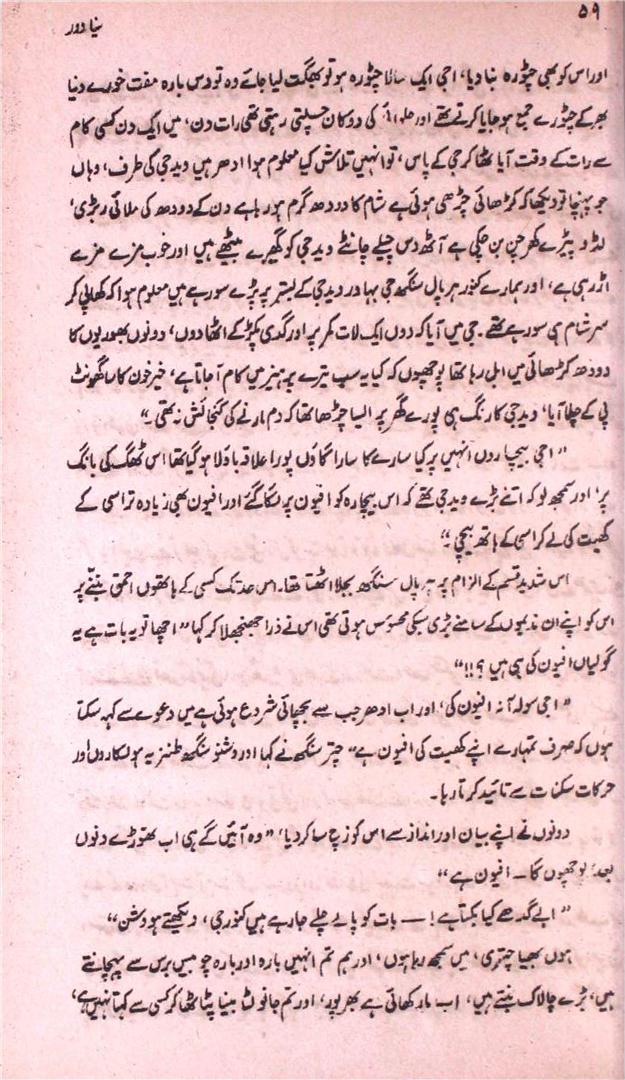 ۵۹
نیا دور
اور اس کو بھی چٹورہ بنا دیا، اجی ایک سالا چٹورہ ہو تو بھگت لیا جائے وہ تو دس بارہ مفت خورے دنیا
بھر کے چٹورے جمع ہو جایا کرتے تھے اور حلوائی کی دوکان چلتی رہتی تھی رات دن، میں ایک دن کسی کام
سے رات کے وقت آیا ٹھاکر جی کے پاس، تو انہیں تلاش کیا معلوم ہوا ادھر ہیں ویدجی کی طرف، وہاں
جو پہنچا تو دیکھا کہ کڑھائی چڑھی ہوئی ہے شام کا دودھ گرم ہو رہا ہے دن کے دودھ کی ملائی ربڑی،
لڈو پیڑے کھرچن بن چکی ہے آٹھ دس چیلے چانٹے ویدجی کو گھیرے بیٹھے ہیں اور خوب مزے مزے
اڑ رہی ہے، اور ہمارے کنور ہرپال سنگھ جی بہادر ویدجی کے بستر پر پڑے سو رہے ہیں معلوم ہوا کہ کھا پی کر
سر شام ہی سو رہے تھے۔ جی میں آیا کہ دوں ایک لات کمر پر اور گدی پکڑ کے اٹھا دوں، دونوں بھوریوں کا
دودھ کڑھائی میں ابل رہا تھا پوچھوں کہ کیا یہ سب تیرے پرہیز میں کام آ جاتا ہے، خیر خون کا سا گھونٹ
پی کے چلا آیا، ویدجی کا رنگ ہی پورے گھر پر ایسا چڑھا تھا کہ دم مارنے کی گنجائش نہ تھی۔"
"اجی بیچاروں انہیں پر کیا سارے کا سارا گاؤں پورا علاقہ باؤلا ہو گیا تھا اس ٹھگ کی بانگ
پر، اور سمجھ لو کہ اتنے بڑے ویدجی تھے کہ اس بیچارہ کو افیون پر لگا گئے اور افیون بھی زیادہ تر اسی کے
کھیت کی لے کر اسی کے ہاتھ بیچی۔"
اس شدید قسم کے الزام پر ہرپال سنگھ بجلا اٹھتا تھا۔ اس حد تک کسی کے ہاتھوں احمق بننے پر
اس کو اپنے ان ندیموں کے سامنے بڑی سبکی محسوس ہوتی تھی اس نے ذرا جھنجھلا کر کہا "اچھا تو یہ بات ہے یہ
گولیاں افیون کی ہی ہیں؟!!"
"اجی سولہ آنہ افیون کی، اور اب ادھر جب سے بچپائی شروع ہوئی ہے میں دعوے سے کہہ سکتا
ہوں کہ صرف تمہارے اپنے کھیت کی افیون ہے" چتر سنگھ نے کہا اور وشنو سنگھ طنزیہ ہولکاروں اور
حرکات سکنات سے تائید کرتا رہا۔
دونوں نے اپنے بیان اور انداز سے اس کو زچ سا کر دیا، "وہ آئیں گے ہی اب تھوڑے دنوں
بعد؛ پوچھوں گا۔ افیون ہے"
"ابے گدھے کیا بکتا ہے! — بات کو پالے چلے جا رہے ہیں کنور جی، دیکھتے ہو وشن"
ہوں بھیا چتری، میں سمجھ رہا ہوں، اور ہم تم انہیں بارہ اور بارہ چوبیس برس سے پہچانتے
ہیں، بڑے چالاک بنتے ہیں، اب مار کھائی ہے بھرپور، اور تم جانو لٹا بنیا پٹا ٹھاکر کسی سے کہتا نہیں ہے،